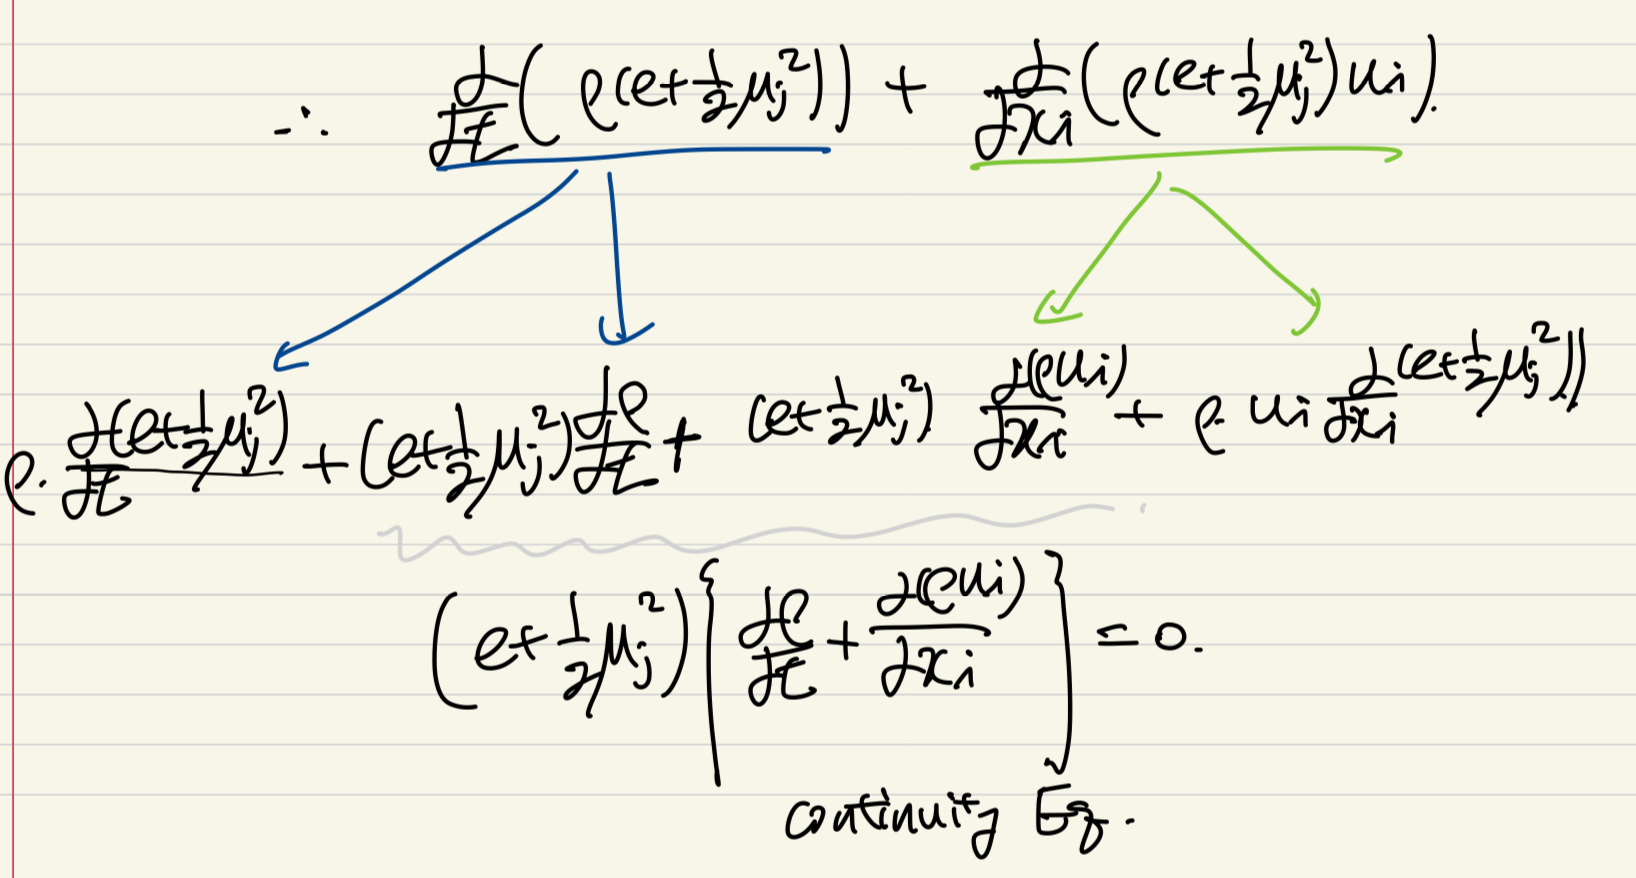 ∴ ∂/∂t (ρ(e+½u_j²)) + ∂/∂x_i (ρ(e+½u_j²)u_i).
ρ. ∂(e+½u_j²)/∂t + (e+½u_j²) ∂ρ/∂t + (e+½u_j²) ∂(ρu_i)/∂x_i + ρ u_i ∂/∂x_i (e+½u_j²))
(e+½u_j²) { ∂ρ/∂t + ∂(ρu_i)/∂x_i } = 0.
continuity Eq.